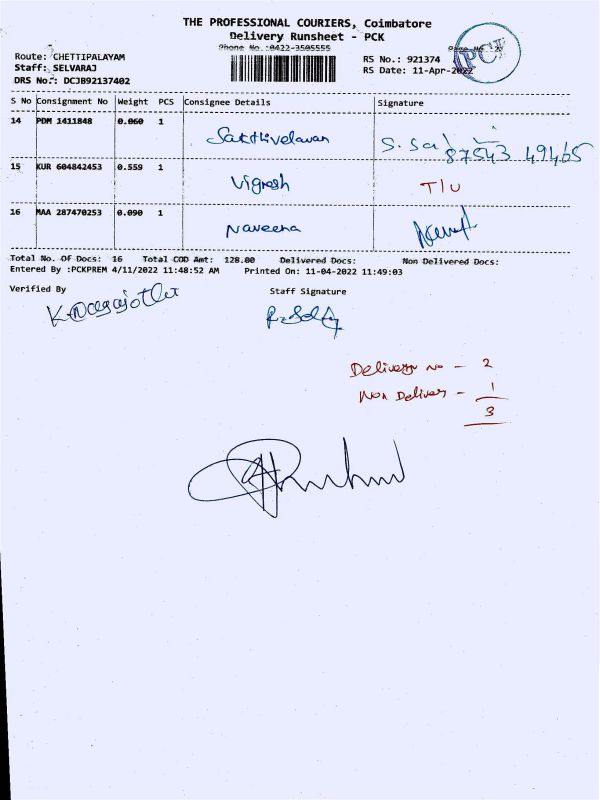 THE PROFESSIONAL COURIERS, Coimbatore
Delivery Runsheet - PCK
Phone No.:0422-3505555
Route: CHETTIPALAYAM
Staff: SELVARAJ
DRS No.: DCJB92137402
RS No.: 921374
RS Date: 11-Apr-2022
PCK
S No Consignment No Weight PCS Consignee Details Signature
14 PDM 1411848 0.060 1 Sakthivelavan S. Sa 87543 49465
15 KUR 604842453 0.559 1 Vignesh T/U
16 MAA 287470253 0.090 1 Naveena
Total No. Of Docs: 16 Total COD Amt: 128.00 Delivered Docs: Non Delivered Docs:
Entered By :PCKPREM 4/11/2022 11:48:52 AM Printed On: 11-04-2022 11:49:03
Verified By Staff Signature
Delivery no - 2
Non Delivery - 1
3